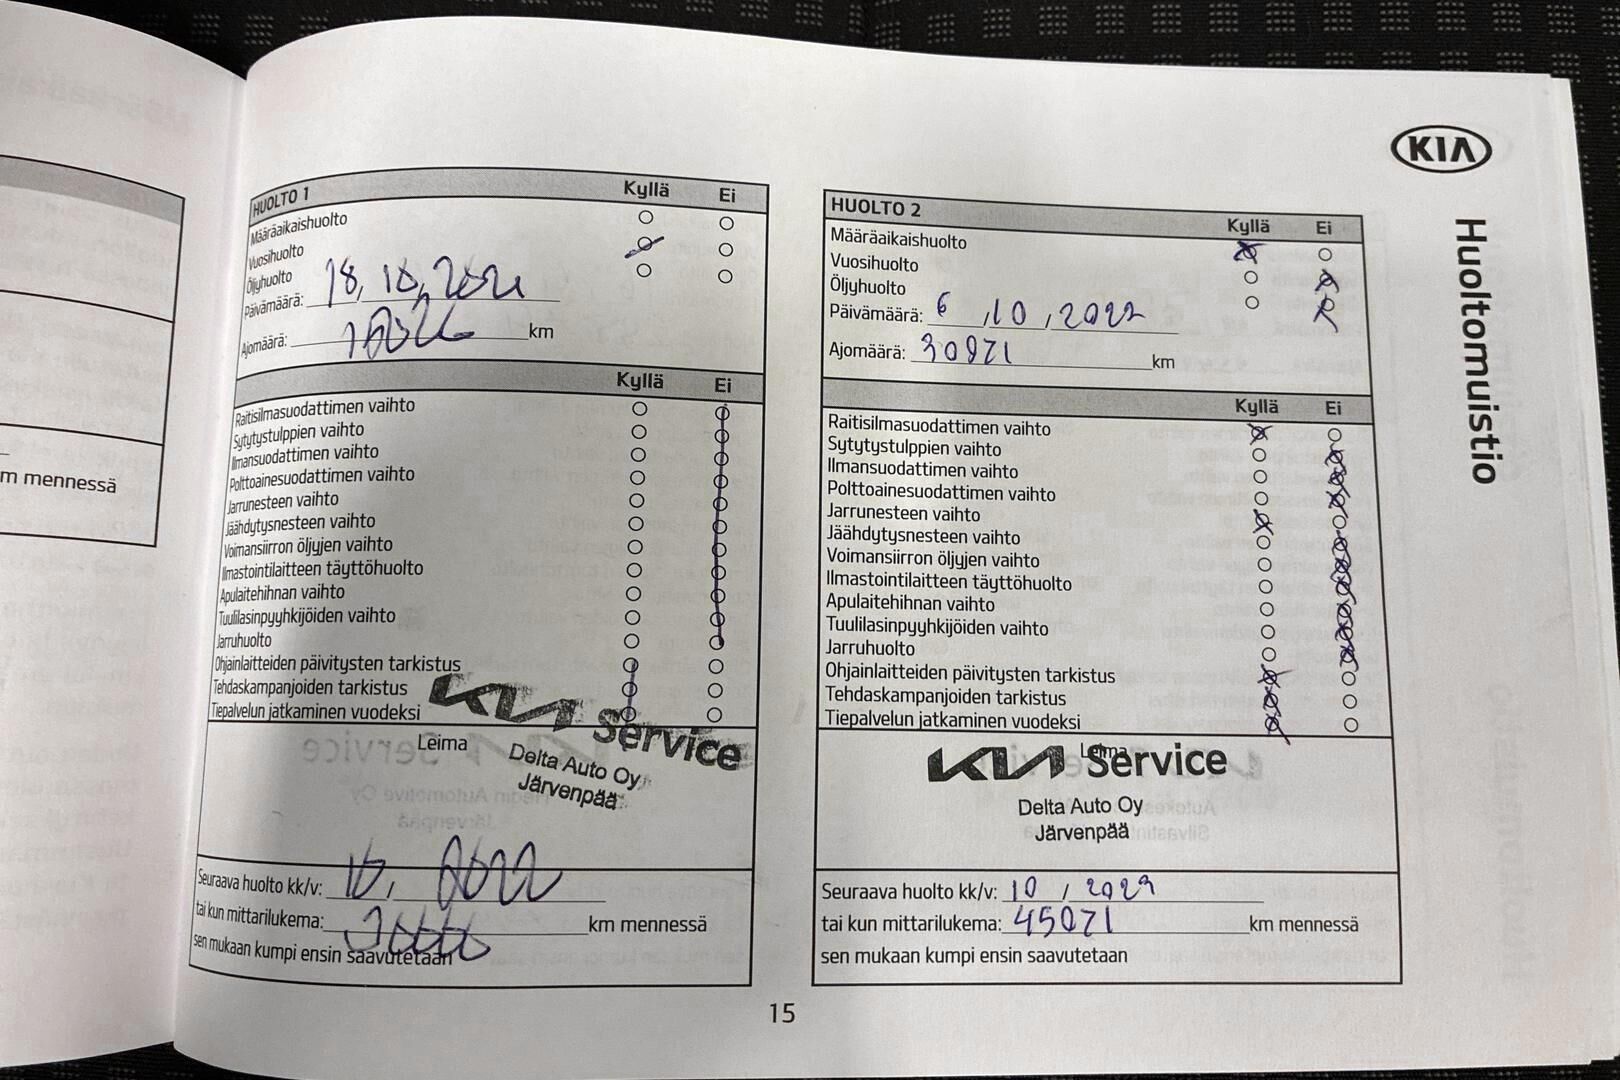 KIA
Huoltomuistio
m mennessä
HUOLTO 1 Kyllä Ei
Määräaikaishuolto
Vuosihuolto
Öljyhuolto
Päivämäärä: 18, 10, 2021
Ajomäärä: km
Kyllä Ei
Raitisilmasuodattimen vaihto
Sytytystulppien vaihto
Ilmansuodattimen vaihto
Polttoainesuodattimen vaihto
Jarrunesteen vaihto
Jäähdytysnesteen vaihto
Voimansiirron öljyjen vaihto
Ilmastointilaitteen täyttöhuolto
Apulaitehihnan vaihto
Tuulilasinpyyhkijöiden vaihto
Jarruhuolto
Ohjainlaitteiden päivitysten tarkistus
Tehdaskampanjoiden tarkistus
Tiepalvelun jatkaminen vuodeksi
Leima
KIA Service
Delta Auto Oy
Järvenpää
Seuraava huolto kk/v: 10, 2022
tai kun mittarilukema: km mennessä
sen mukaan kumpi ensin saavutetaan
HUOLTO 2 Kyllä Ei
Määräaikaishuolto
Vuosihuolto
Öljyhuolto
Päivämäärä: 6 , 10 , 2022
Ajomäärä: 30071 km
Kyllä Ei
Raitisilmasuodattimen vaihto
Sytytystulppien vaihto
Ilmansuodattimen vaihto
Polttoainesuodattimen vaihto
Jarrunesteen vaihto
Jäähdytysnesteen vaihto
Voimansiirron öljyjen vaihto
Ilmastointilaitteen täyttöhuolto
Apulaitehihnan vaihto
Tuulilasinpyyhkijöiden vaihto
Jarruhuolto
Ohjainlaitteiden päivitysten tarkistus
Tehdaskampanjoiden tarkistus
Tiepalvelun jatkaminen vuodeksi
Leima
KIA Service
Delta Auto Oy
Järvenpää
Seuraava huolto kk/v: 10 / 2023
tai kun mittarilukema: 45071 km mennessä
sen mukaan kumpi ensin saavutetaan
15